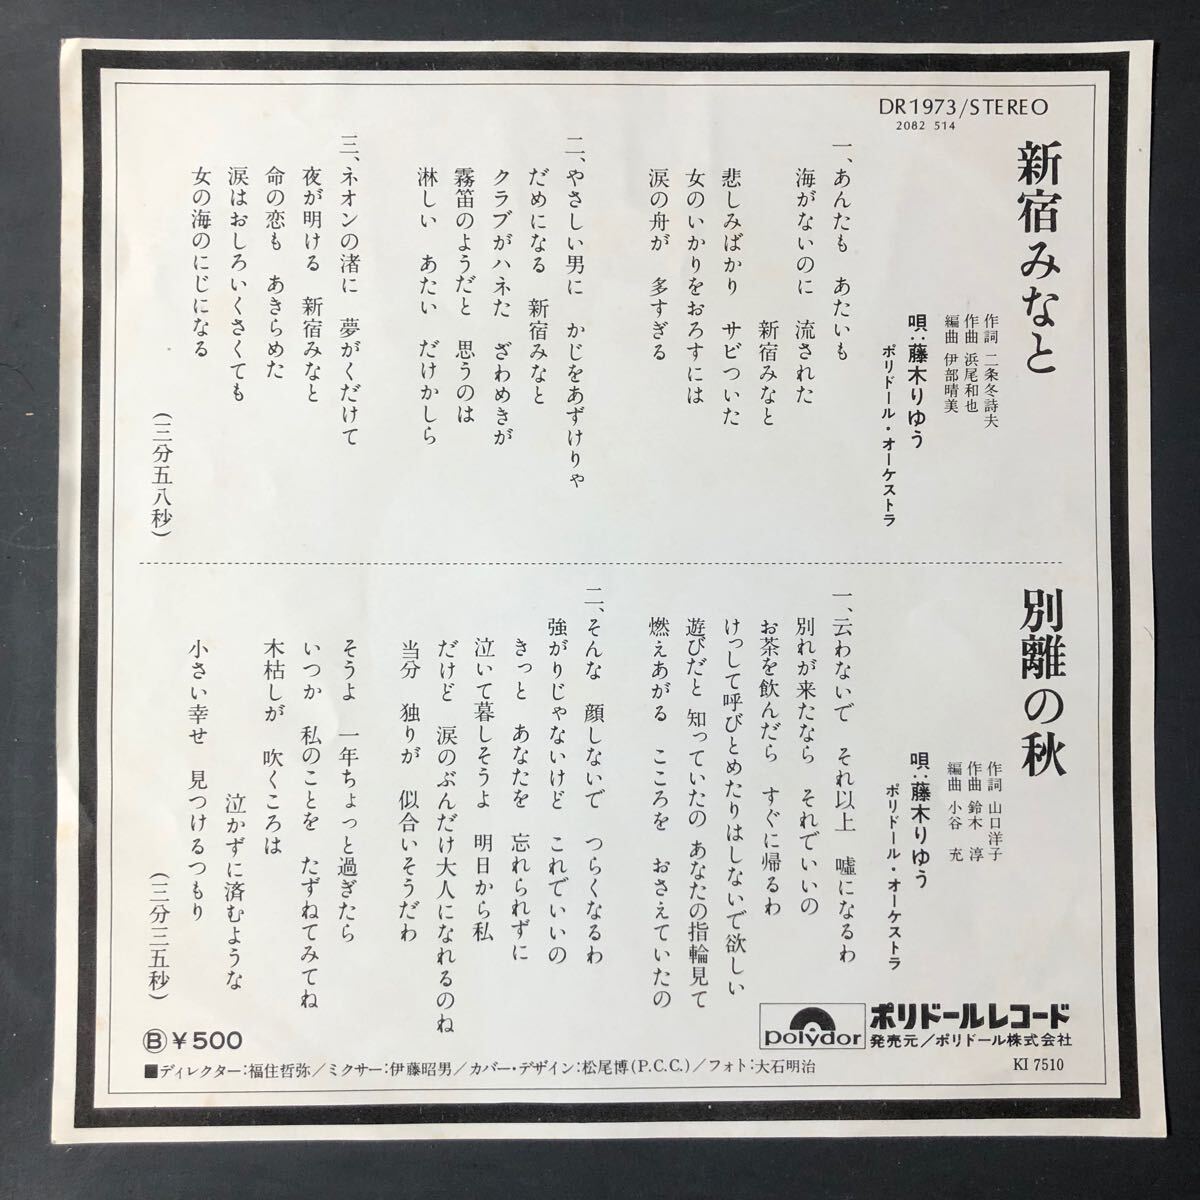 DR1973/STEREO
2082 514
新宿みなと
作詞 二条冬詩夫
作曲 浜尾和也
編曲 伊部晴美
唄：藤木りゆう
ポリドール・オーケストラ
一、あんたも あたいも
海がないのに 流された
新宿みなと
悲しみばかり サビついた
女のいかりをおろすには
涙の舟が 多すぎる
二、やさしい男に かじをあずけりゃ
だめになる 新宿みなと
クラブがハネた ざわめきが
霧笛のようだと 思うのは
淋しい あたい だけかしら
三、ネオンの渚に 夢がくだけて
夜が明ける 新宿みなと
命の恋も あきらめた
涙はおしろいくさくても
女の海のにじになる
(三分五八秒)
別離の秋
作詞 山口洋子
作曲 鈴木 淳
編曲 小谷 充
唄：藤木りゆう
ポリドール・オーケストラ
一、云わないで それ以上 嘘になるわ
別れが来たなら それでいいの
お茶を飲んだら すぐに帰るわ
けっして呼びとめたりはしないで欲しい
遊びだと 知っていたの あなたの指輪見て
燃えあがる こころを おさえていたの
二、そんな 顔しないで つらくなるわ
強がりじゃないけど これでいいの
きっと あなたを 忘れられずに
泣いて暮しそうよ 明日から私
だけど 涙のぶんだけ大人になれるのね
当分 独りが 似合いそうだわ
そうよ 一年ちょっと過ぎたら
いつか 私のことを たずねてみてね
木枯しが 吹くころは
泣かずに済むような
小さい幸せ 見つけるつもり
(三分三五秒)
polydor
ポリドールレコード
発売元／ポリドール株式会社
Ⓑ ¥500
■ディレクター：福住哲弥／ミクサー：伊藤昭男／カバー・デザイン：松尾博(P.C.C.)／フォト：大石明治
KI 7510